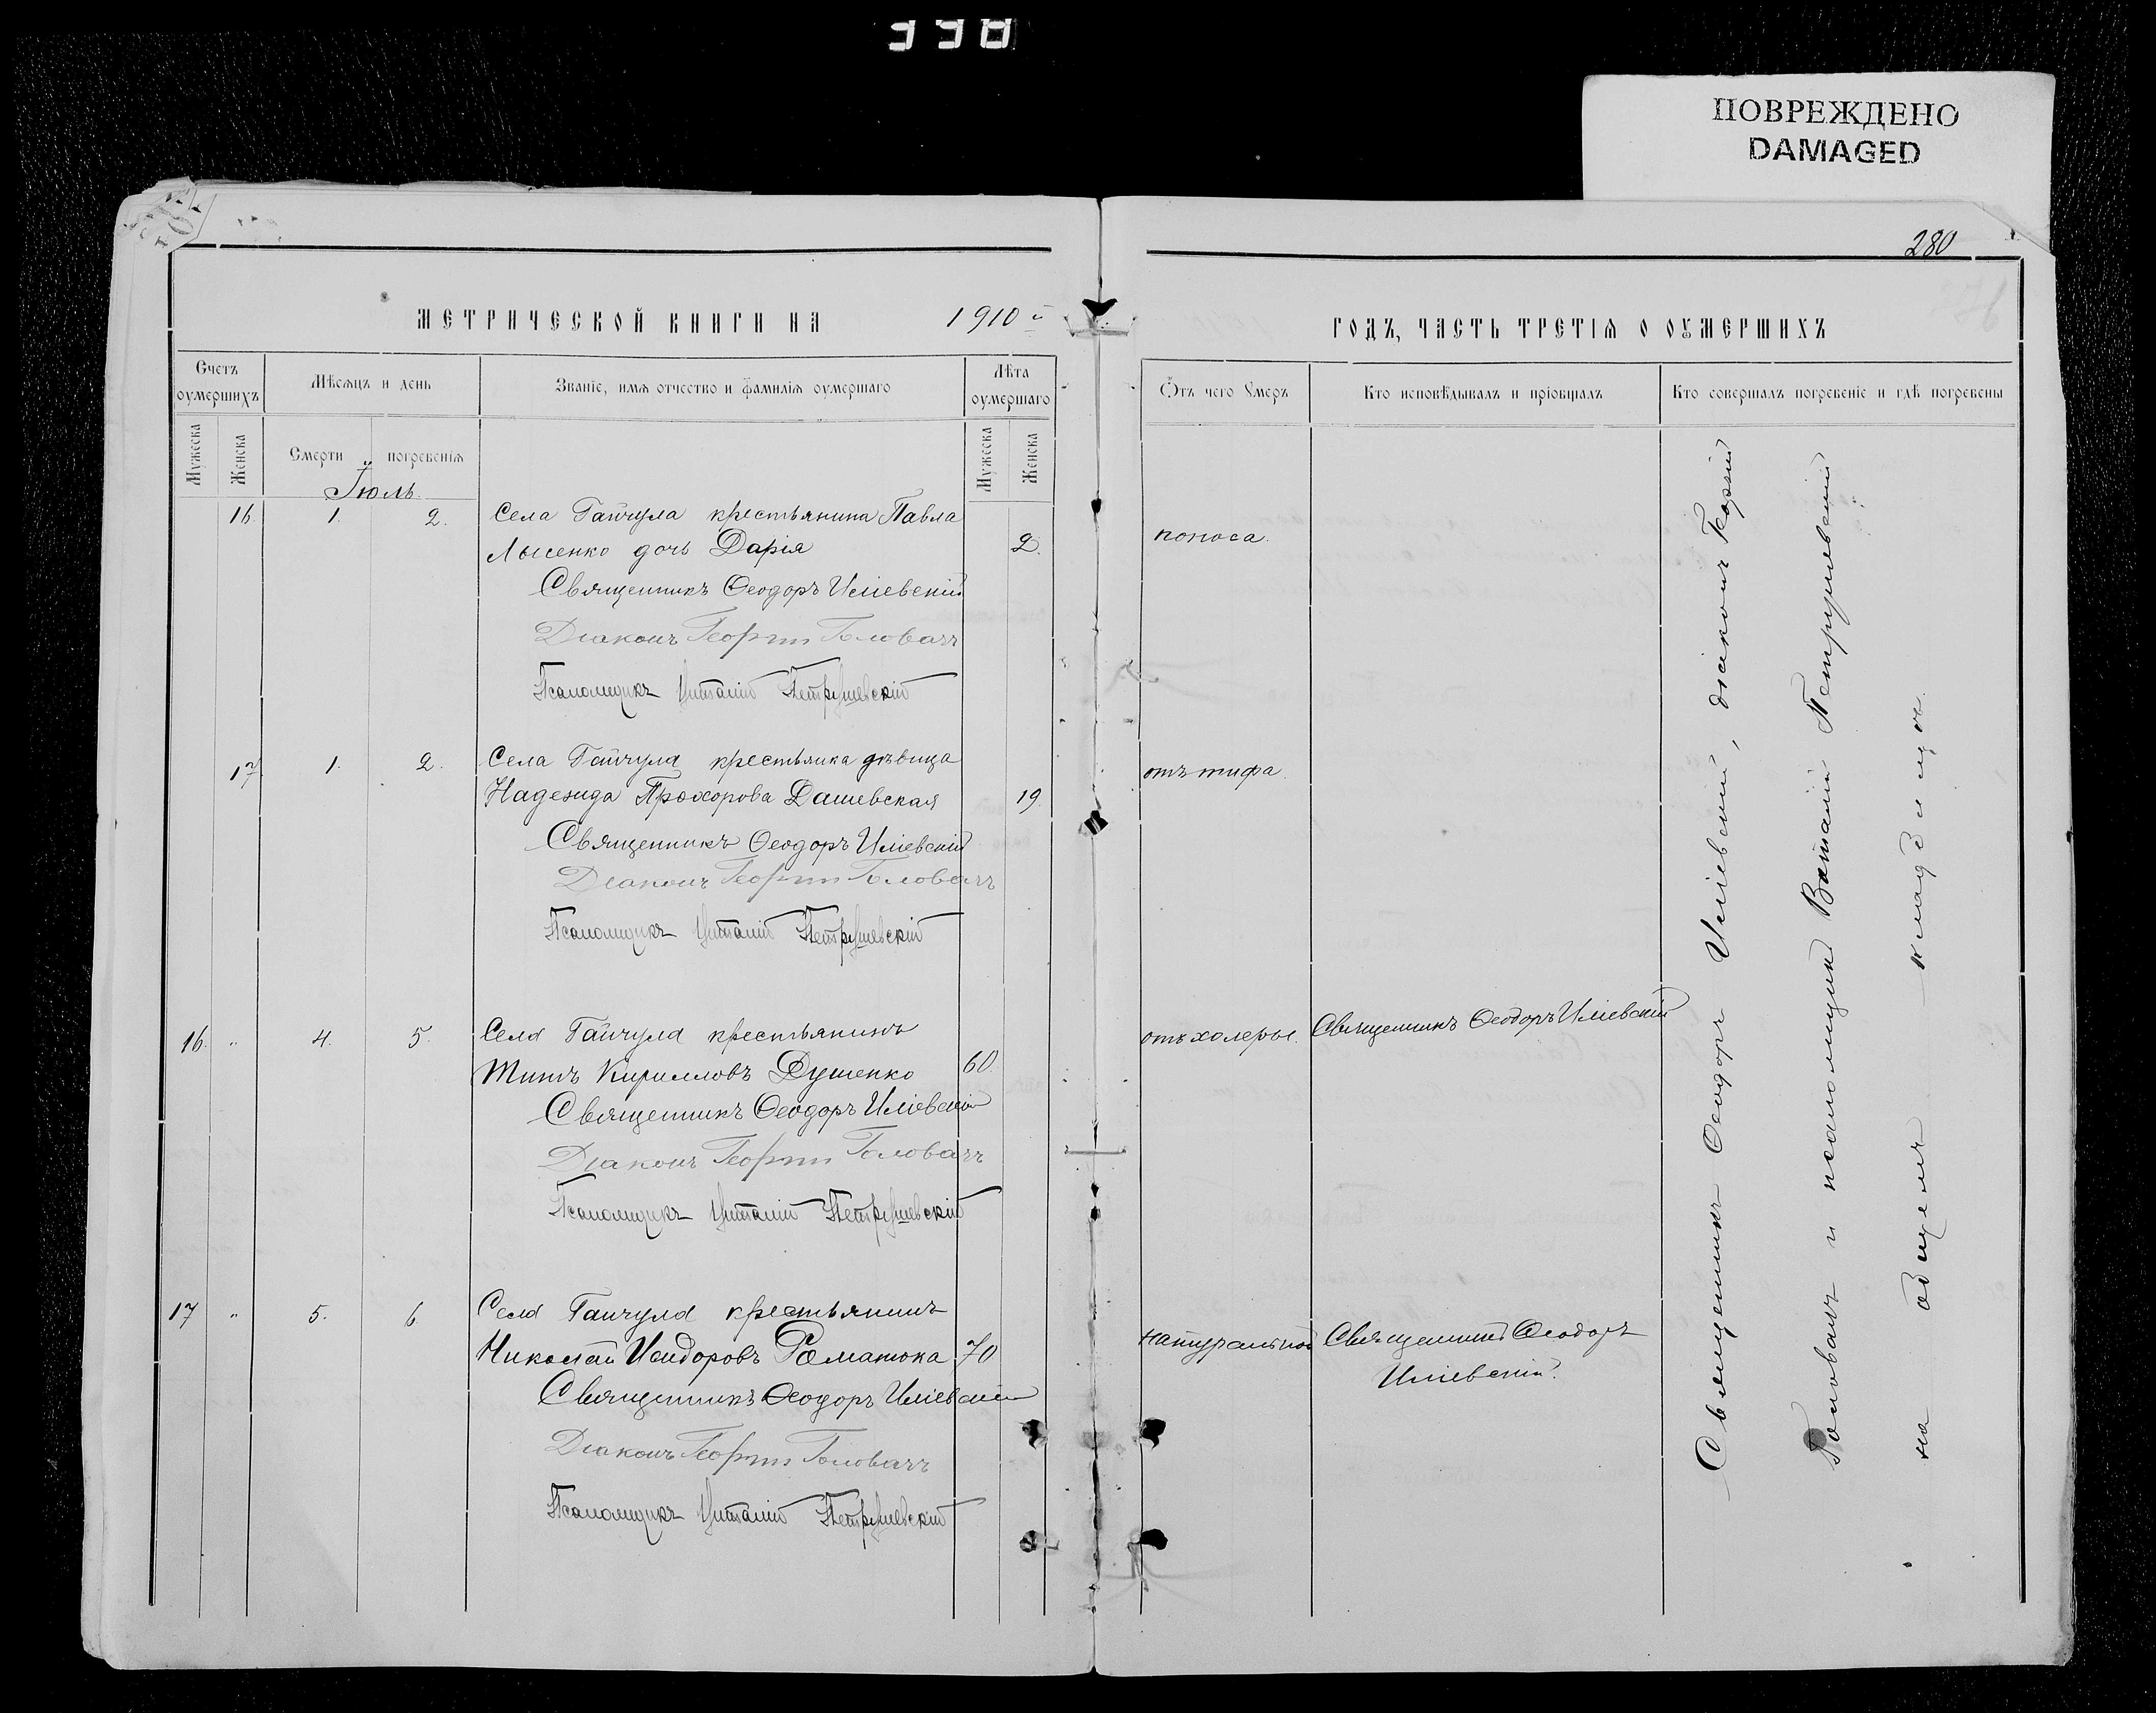 338
ПОВРЕЖДЕНО
DAMAGED
280
МЕТРИЧЕСКОЙ КНИГИ НА 1910й
ГОДЪ, ЧАСТЬ ТРЕТІЯ О ОУМЕРШИХЪ
Счетъ оумершихъ
Мѣсяцъ и день
Званіе, имя отчество и фамилія оумершаго
Лѣта оумершаго
Отъ чего Умеръ
Кто исповѣдывалъ и пріобщалъ
Кто совершалъ погребеніе и гдѣ погребены
Мужеска
Женска
Смерти
погребенія
Мужеска
Женска
Іюль.
16. 1. 2. Села Гайчула крестьянина Павла
Лысенко дочь Дарія 2. поноса.
Священникъ Ѳеодоръ Иліевскій
Діаконъ Георгій Головачъ
Псаломщикъ Виталій Петрушевскій
17. 1. 2. Села Гайчула крестьянка дѣвица отъ тифа.
Надежда Прохорова Дашевская 19.
Священникъ Ѳеодоръ Иліевскій
Діаконъ Георгій Головачъ
Псаломщикъ Виталій Петрушевскій
16. " 4. 5. Села Гайчула крестьянинъ отъ холеры. Священникъ Ѳеодоръ Иліевскій
Титъ Кирилловъ Душенко 60
Священникъ Ѳеодоръ Иліевскій
Діаконъ Георгій Головачъ
Псаломщикъ Виталій Петрушевскій
17 " 5. 6 Села Гайчула крестьянинъ
Николай Исидоровъ Романюка 70 натуральной Священникъ Ѳеодоръ
Иліевскій.
Священникъ Ѳеодоръ Иліевскій
Діаконъ Георгій Головачъ
Псаломщикъ Виталій Петрушевскій
Священникъ Ѳеодоръ Иліевскій, діаконъ Георгій
Головачъ и псаломщикъ Виталій Петрушевскій
на общемъ кладбищѣ.